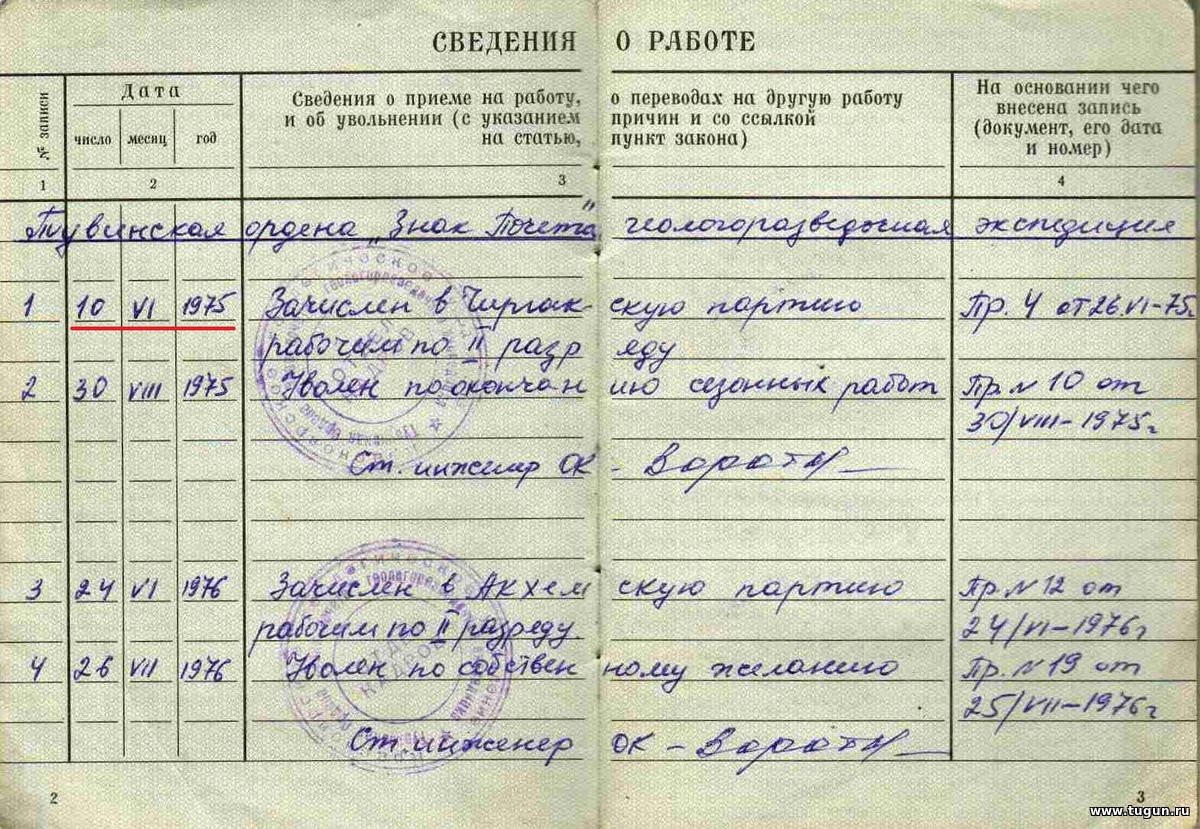 СВЕДЕНИЯ О РАБОТЕ
№ записи
Дата
число месяц год
Сведения о приеме на работу, о переводах на другую работу
и об увольнении (с указанием причин и со ссылкой
на статью, пункт закона)
На основании чего
внесена запись
(документ, его дата
и номер)
1 2 3 4
Тувинская ордена „Знак Почета" геологоразведочная экспедиция
1 10 VI 1975 Зачислен в Чиргак- скую партию Пр. 4 от 26.VI-75г
рабочим по II разр яду
2 30 VIII 1975 Уволен по окончан ию сезонных работ Пр. N 10 от
30/VIII-1975г
Ст. инженер ОК -
3 24 VI 1976 Зачислен в Акхем скую партию Пр. N 12 от
рабочим по II разряду. 24/VI-1976г
4 26 VII 1976 Уволен по собствен ному желанию Пр. N 19 от
25/VII-1976г
Ст. инженер ОК -
2 3
www.tugun.ru